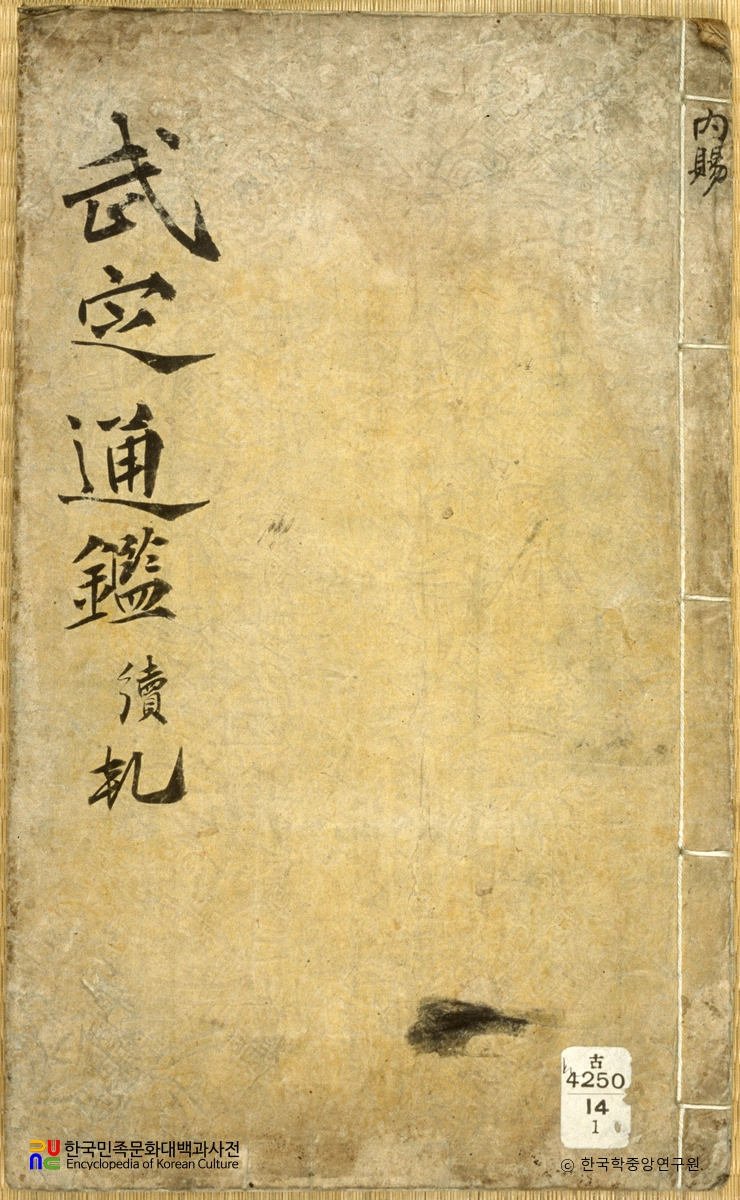 內賜
武定通鑑 續 乹
古
4250
14
1
한국민족문화대백과사전
Encyclopedia of Korean Culture
© 한국학중앙연구원.